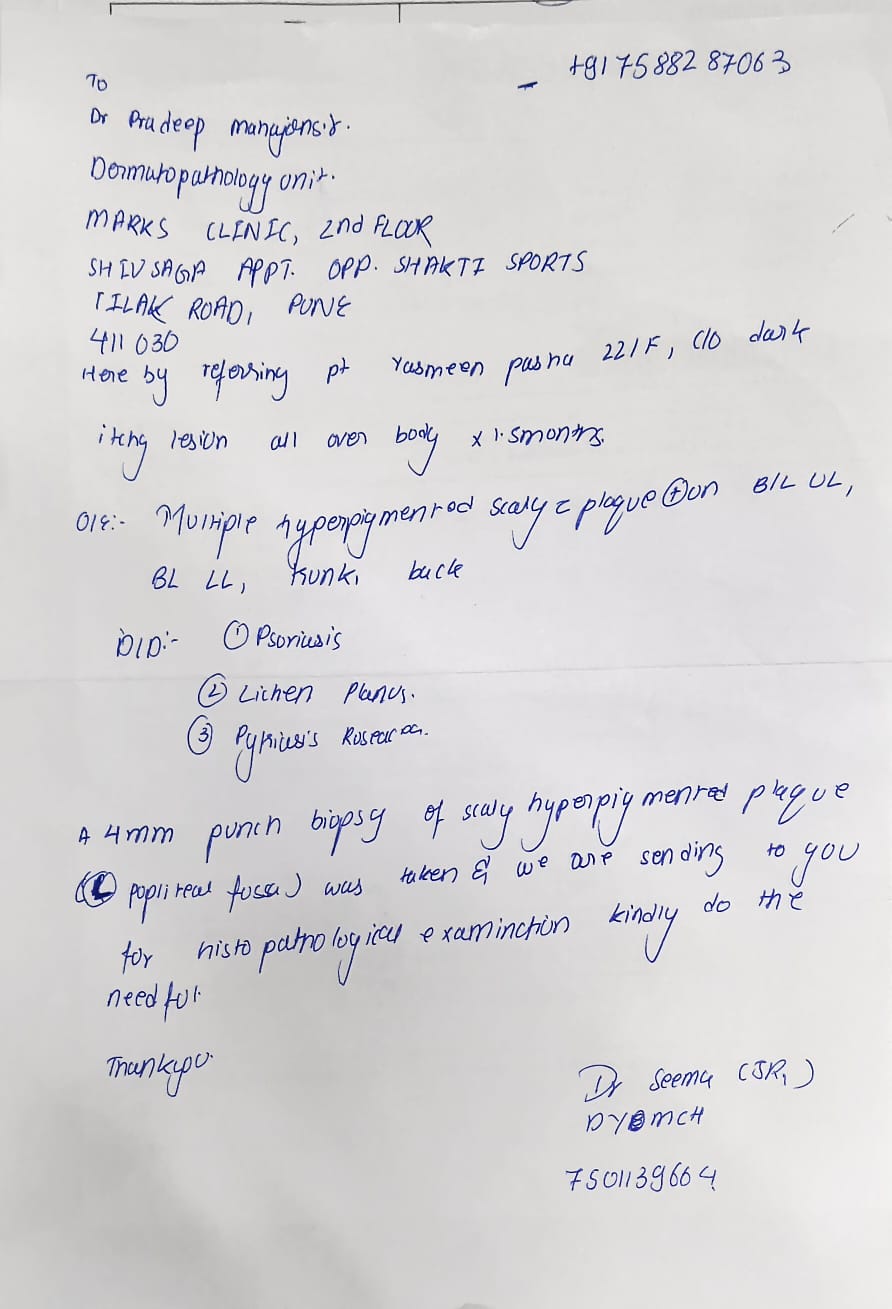 +91 75882 87063
To
Dr Pradeep
Dermatopathology unit.
MARKS CLINIC, 2nd FLOOR
SHIVSAGA APPT. OPP. SHAKTI SPORTS
TILAK ROAD, PUNE
411 030
Here by referring pt Yasmeen pasha 22/F, C/O dark
itchg lesion all over body x 1.5months.
O/E:- Multiple hyperpigmented scaly plaque ⊕ on B/L UL,
BL LL, trunk, back
D/D:- ① Psoriasis
② Lichen Planus.
③
A 4mm punch biopsy of scaly hyperpigmented plaque
(Ⓛ popliteal fossa) was taken & we are sending to you
for histopathological examination kindly do the
needful.
Thankyou.
Dr Seema (JR1)
MCH
7501139664